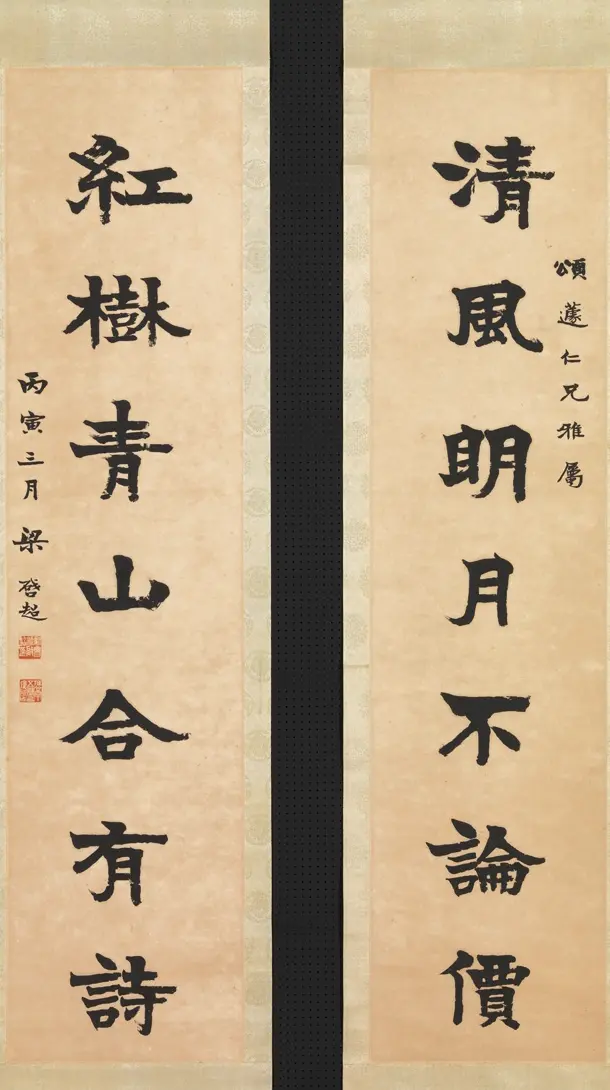 頌蘧仁兄雅屬
清風朙月不論價
紅樹青山合有詩
丙寅三月 梁啓超